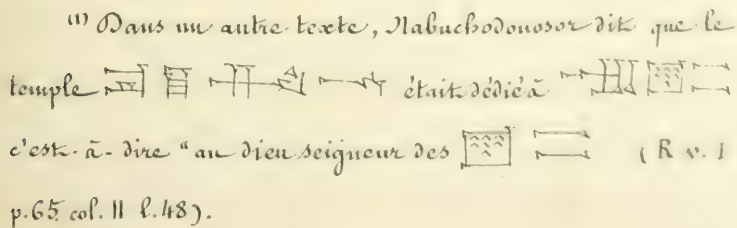 (1) Dans un autre texte, Nabuchodonosor dit que le
temple était dédié à
c'est-à-dire "au dieu seigneur des (R v. I
p. 65 col. II l. 48).